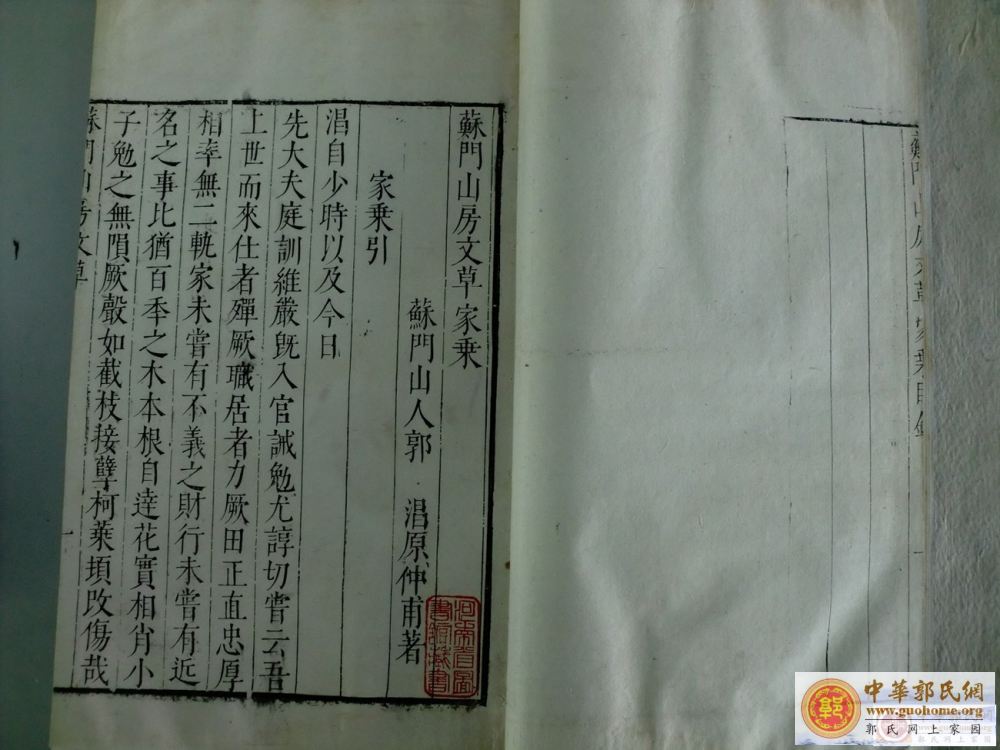 蘇門山房文草家乘目錄
一
蘇門山房文草 家乘
蘇門山人郭 淐原仲甫著
家乘引
淐自少時以及今日
先大夫庭訓維嚴旣入官誡勉尤諄切嘗云吾
上世而來仕者殫厥職居者力厥田正直忠厚
相率無二軌家未嘗有不義之財行未嘗有近
名之事比猶百季之木本根自達花實相肖小
子勉之無隕厥聲如截枝接孽柯葉頓改傷哉
蘇門山房文草
一
河南省圖
書館藏書
郭
中華郭氏網
www.guohome.org
郭氏网上家园